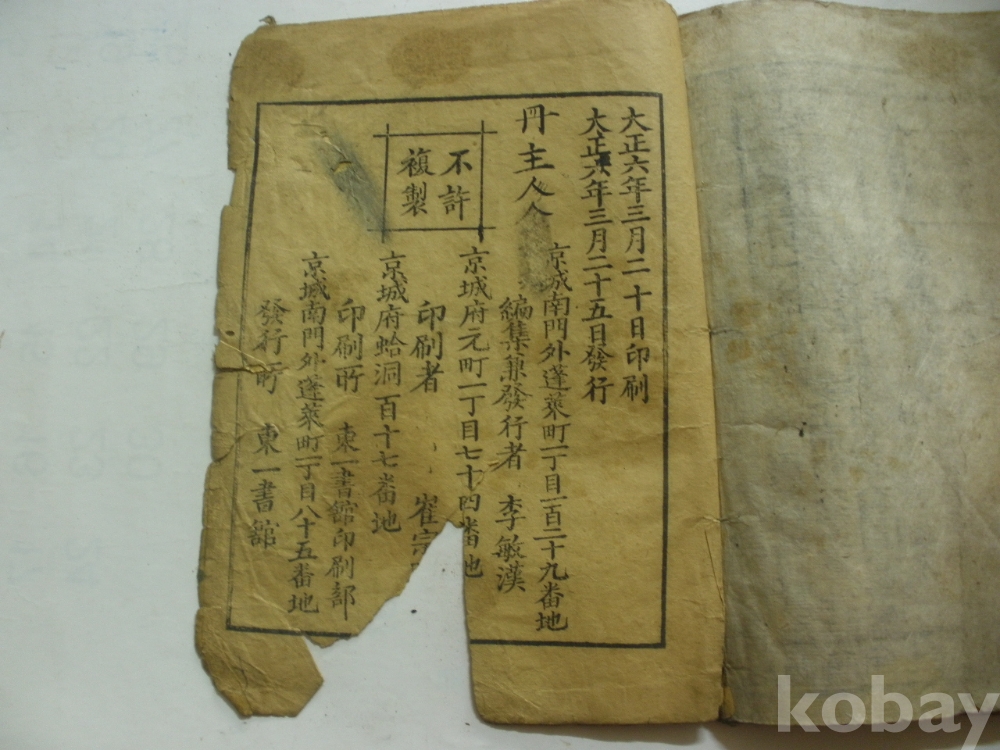 大正六年三月二十日印刷
大正六年三月二十五日發行
冊主人
京城南門外蓬萊町一丁目一百二十九番地
編集兼發行者 李敏漢
不許
複製
京城府元町一丁目七十四番地
印刷者 崔宗
京城府蛤洞百十七番地
印刷所 東一書館印刷部
京城南門外蓬萊町一丁目八十五番地
發行所 東一書館
kobay